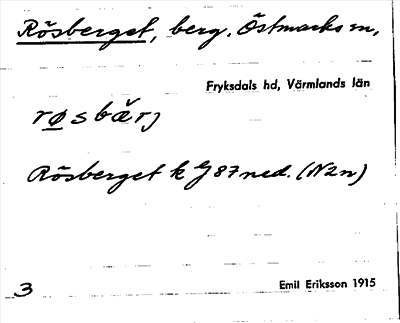 Rösberget, berg. Östmarks sn,
Fryksdals hd, Värmlands län
røsbærj
Rösberget k 87 ned. (N2n)
3
Emil Eriksson 1915